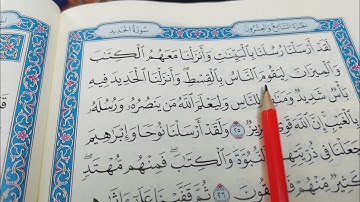 الجزء السابع والعشرون سورة الحديد
لَقَدْ أَرْسَلْنَا رُسُلَنَا بِالْبَيِّنَاتِ وَأَنزَلْنَا مَعَهُمُ الْكِتَابَ
وَالْمِيزَانَ لِيَقُومَ النَّاسُ بِالْقِسْطِ وَأَنزَلْنَا الْحَدِيدَ فِيهِ
بَأْسٌ شَدِيدٌ لِلنَّاسِ وَلِيَعْلَمَ اللَّهُ مَن يَنصُرُهُ وَرُسُلَهُ
بِالْغَيْبِ إِنَّ اللَّهَ قَوِيٌّ ٢٥ وَلَقَدْ أَرْسَلْنَا نُوحًا وَإِبْرَاهِيمَ
وَجَعَلْنَا فِي ذُرِّيَّتِهِمَا النُّبُوَّةَ وَالْكِتَابَ فَمِنْهُم مُّهْتَدٍ
وَكَثِيرٌ مِّنْهُمْ فَاسِقُونَ ٢٦ ثُمَّ قَفَّيْنَا